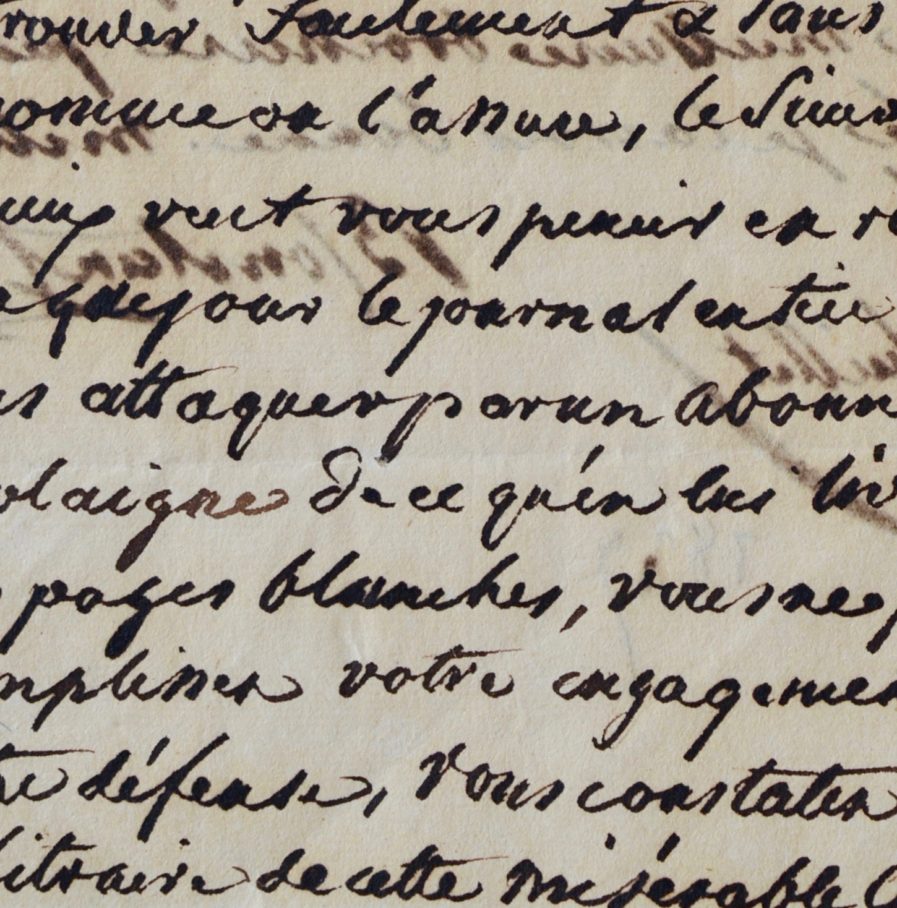 rouver seulement & sans
comme on l'assure, le
veut vous punir en
jour le journal entier
attaquer par un abonn
plaigne de ce qu'én lui liv
pages blanches, vous ne p
mplissez votre engagemen
re défense, vous constatez
bitraire de cette misérable